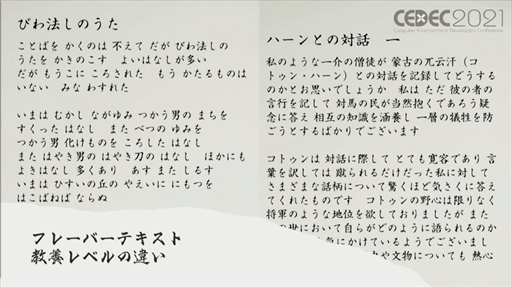 CEDEC2021
Computer Entertainment Developers Conference
びわ法しのうた
ことばを かくのは 不えて だが びわ法しの
うたを かきのこす よいはなしが多い
だが もうこに ころされた もう かたるものは
いない みな わすれた
いまは むかし ながゆみ つかう男の まちを
すくった はなし また べつの ゆみを
つかう男 化けものを ころした はなし
また はやき男の はやき刀の はなし ほかにも
よきはなし 多くあり あす また しるす
いまは ひすいの丘の やえいに にもつを
はこばねば ならぬ
フレーバーテキスト
教養レベルの違い
ハーンとの対話 一
私のような一介の僧徒が 蒙古の兀云汗（コ
トゥン・ハーン）との対話を記録してどうする
のかとお思いでしょうか 私は ただ彼の者の
言行を記して 対馬の民が当然抱くであろう疑
念に答え 相互の知識を涵養し 一層の犠牲を防
ごうとするばかりでございます
コトゥンは 対話に際して とても寛容であり 言
葉を訳しては 蹴られるだけだった私に対して
さまざまな話柄について驚くほど気さくに答え
てくれたものです コトゥンの野心は限りなく
将軍のような地位を欲しておりましたが また
世において自らがどのように語られるのか
にかけているようでございまし
や文物についても 熱心